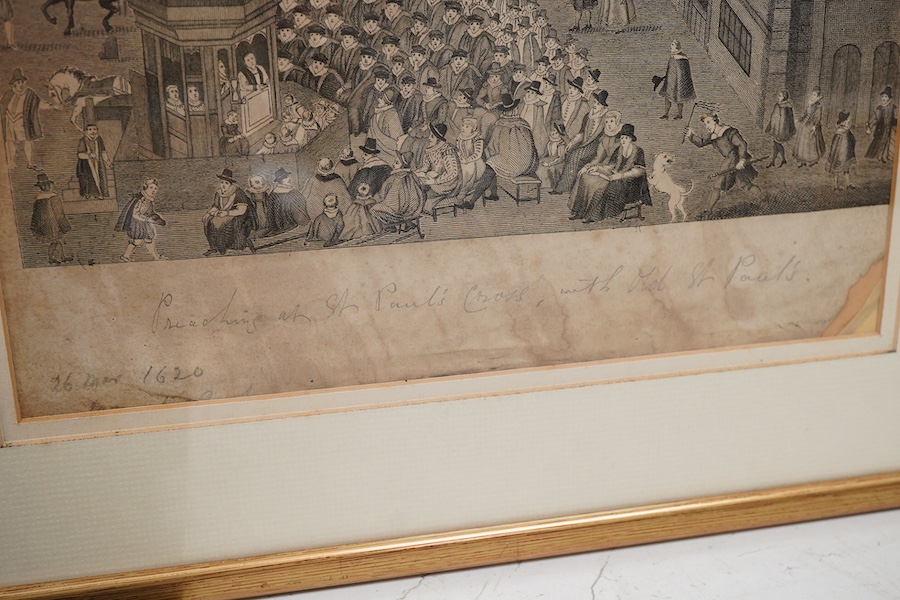 Preaching at St Paul's Cross, with Old St Paul's.
26 Mar 1620